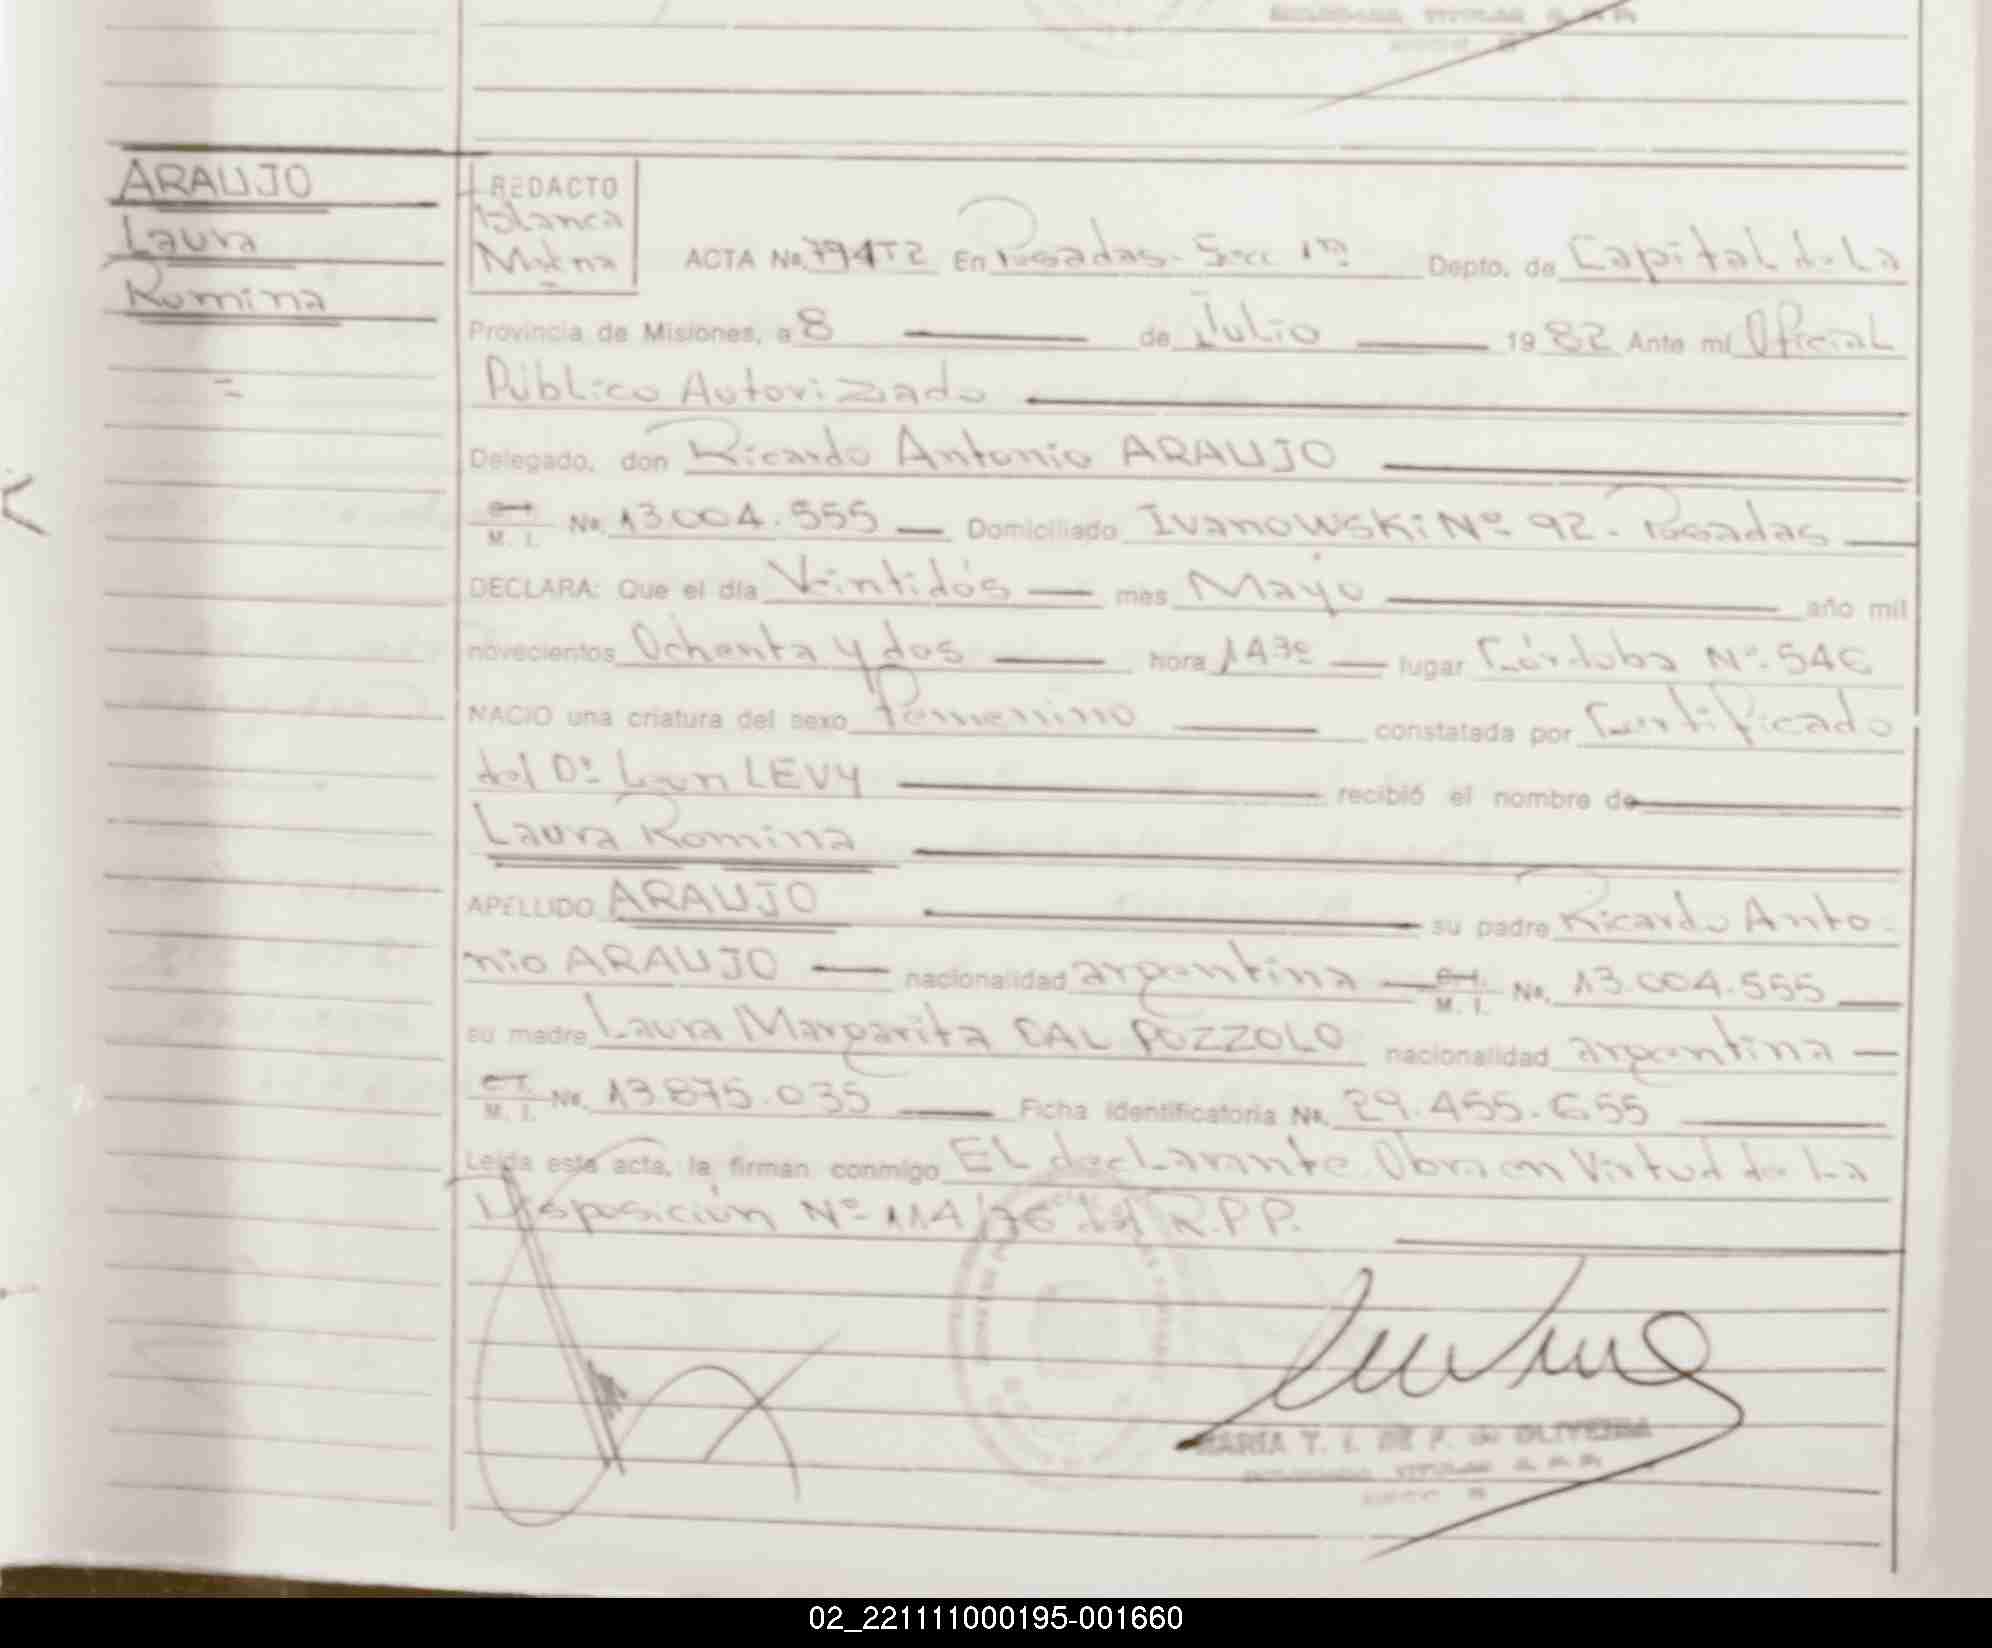 ARAUJO
Laura
Romina
REDACTO
Blanca
ACTA No. 794T2 En Posadas - Secc 1ra Depto. de Capital de La
Provincia de Misiones, a 8 de Julio 1982 Ante mí Oficial
Público Autorizado
Delegado, don Ricardo Antonio ARAUJO
M. I. No. 13.004.555 Domiciliado Ivanowski Nº 92 - Posadas
DECLARA: Que el día Veintidós mes Mayo año mil
novecientos Ochenta y dos hora 14³º lugar Córdoba Nº 546
NACIO una criatura del sexo femenino constatada por Certificado
del Dr León LEVY recibió el nombre de
Laura Romina
APELLIDO ARAUJO su padre Ricardo Anto-
nio ARAUJO nacionalidad argentina M. I. No. 13.004.555
su madre Laura Margarita DAL POZZOLO nacionalidad argentina
M. I. No. 13.875.035 Ficha identificatoria No. 29.455.655
Leída esta acta, la firman conmigo EL declarante. Obra en Virtud de La
Disposición Nº 114/76 del R.P.P.
MARIA T. de OLIVEIRA
02_221111000195-001660